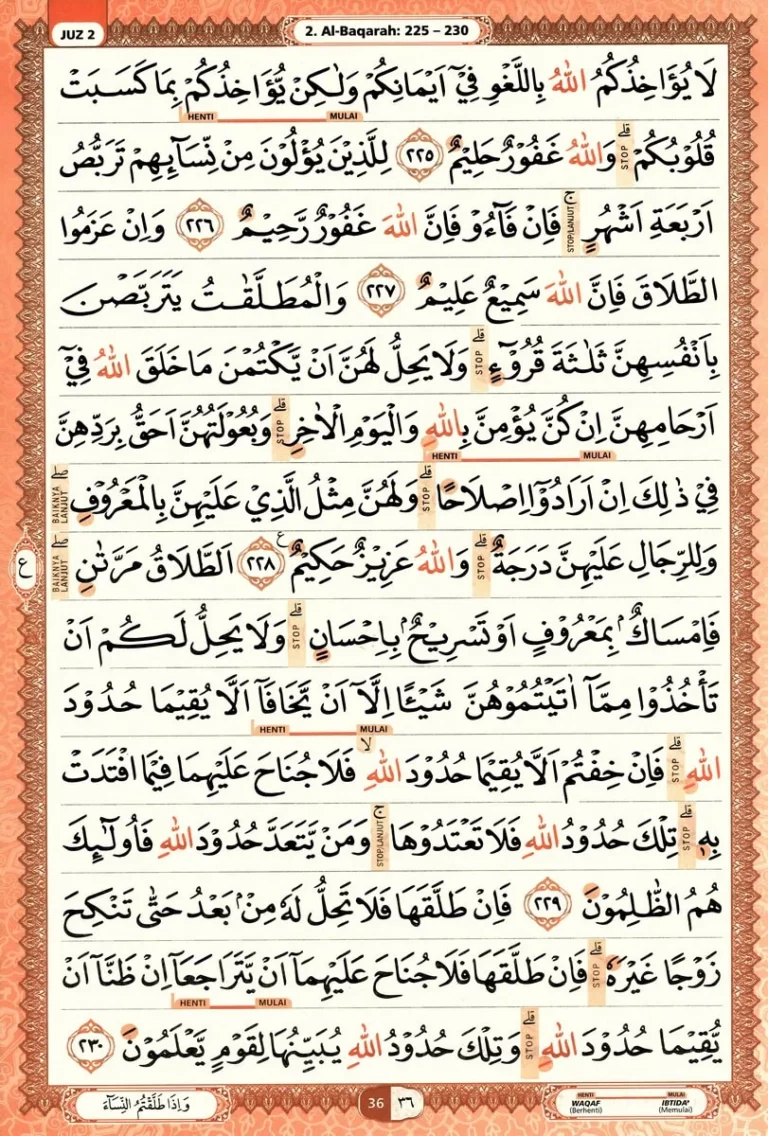 JUZ 2
2. Al-Baqarah: 225 – 230
لَا يُؤَاخِذُكُمُ اللّٰهُ بِاللَّغْوِ فِيْٓ اَيْمَانِكُمْ وَلٰكِنْ يُّؤَاخِذُكُمْ بِمَا كَسَبَتْ
HENTI MULAI
قُلُوْبُكُمْ ۗ وَاللّٰهُ غَفُوْرٌ حَلِيْمٌ ٢٢٥ لِلَّذِيْنَ يُؤْلُوْنَ مِنْ نِّسَاۤىِٕهِمْ تَرَبُّصُ
STOP
اَرْبَعَةِ اَشْهُرٍ ۚ فَاِنْ فَاۤءُوْ فَاِنَّ اللّٰهَ غَفُوْرٌ رَّحِيْمٌ ٢٢٦ وَاِنْ عَزَمُوا
STOP/LANJUT
الطَّلَاقَ فَاِنَّ اللّٰهَ سَمِيْعٌ عَلِيْمٌ ٢٢٧ وَالْمُطَلَّقٰتُ يَتَرَبَّصْنَ
بِاَنْفُسِهِنَّ ثَلٰثَةَ قُرُوْۤءٍ ۗ وَلَا يَحِلُّ لَهُنَّ اَنْ يَّكْتُمْنَ مَا خَلَقَ اللّٰهُ فِيْٓ
STOP
اَرْحَامِهِنَّ اِنْ كُنَّ يُؤْمِنَّ بِاللّٰهِ وَالْيَوْمِ الْاٰخِرِ ۗ وَبُعُوْلَتُهُنَّ اَحَقُّ بِرَدِّهِنَّ
STOP
HENTI MULAI
فِيْ ذٰلِكَ اِنْ اَرَادُوْٓا اِصْلَاحًا ۗ وَلَهُنَّ مِثْلُ الَّذِيْ عَلَيْهِنَّ بِالْمَعْرُوْفِ ۖ
STOP BAIKNYA LANJUT
وَلِلرِّجَالِ عَلَيْهِنَّ دَرَجَةٌ ۗ وَاللّٰهُ عَزِيْزٌ حَكِيْمٌ ࣖ ٢٢٨ اَلطَّلَاقُ مَرَّتٰنِ ۖ
STOP BAIKNYA LANJUT
ع
فَاِمْسَاكٌۢ بِمَعْرُوْفٍ اَوْ تَسْرِيْحٌۢ بِاِحْسَانٍ ۗ وَلَا يَحِلُّ لَكُمْ اَنْ
STOP
تَأْخُذُوْا مِمَّآ اٰتَيْتُمُوْهُنَّ شَيْـًٔا اِلَّآ اَنْ يَّخَافَآ اَلَّا يُقِيْمَا حُدُوْدَ
HENTI MULAI
اللّٰهِ ۗ فَاِنْ خِفْتُمْ اَلَّا يُقِيْمَا حُدُوْدَ اللّٰهِ ۙ فَلَا جُنَاحَ عَلَيْهِمَا فِيْمَا افْتَدَتْ
STOP
بِهٖ ۗ تِلْكَ حُدُوْدُ اللّٰهِ فَلَا تَعْتَدُوْهَا ۚ وَمَنْ يَّتَعَدَّ حُدُوْدَ اللّٰهِ فَاُولٰۤىِٕكَ
STOP STOP/LANJUT
هُمُ الظّٰلِمُوْنَ ٢٢٩ فَاِنْ طَلَّقَهَا فَلَا تَحِلُّ لَهٗ مِنْۢ بَعْدُ حَتّٰى تَنْكِحَ
زَوْجًا غَيْرَهٗ ۗ فَاِنْ طَلَّقَهَا فَلَا جُنَاحَ عَلَيْهِمَآ اَنْ يَّتَرَاجَعَآ اِنْ ظَنَّآ اَنْ
STOP
HENTI MULAI
يُّقِيْمَا حُدُوْدَ اللّٰهِ ۗ وَتِلْكَ حُدُوْدُ اللّٰهِ يُبَيِّنُهَا لِقَوْمٍ يَّعْلَمُوْنَ ٢٣٠
STOP
وَاِذَا طَلَّقْتُمُ النِّسَاۤءَ
36 ٣٦
HENTI MULAI
WAQAF IBTIDA'
(Berhenti) (Memulai)